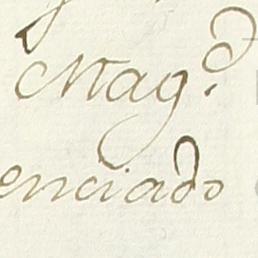 Mag.d
enciado